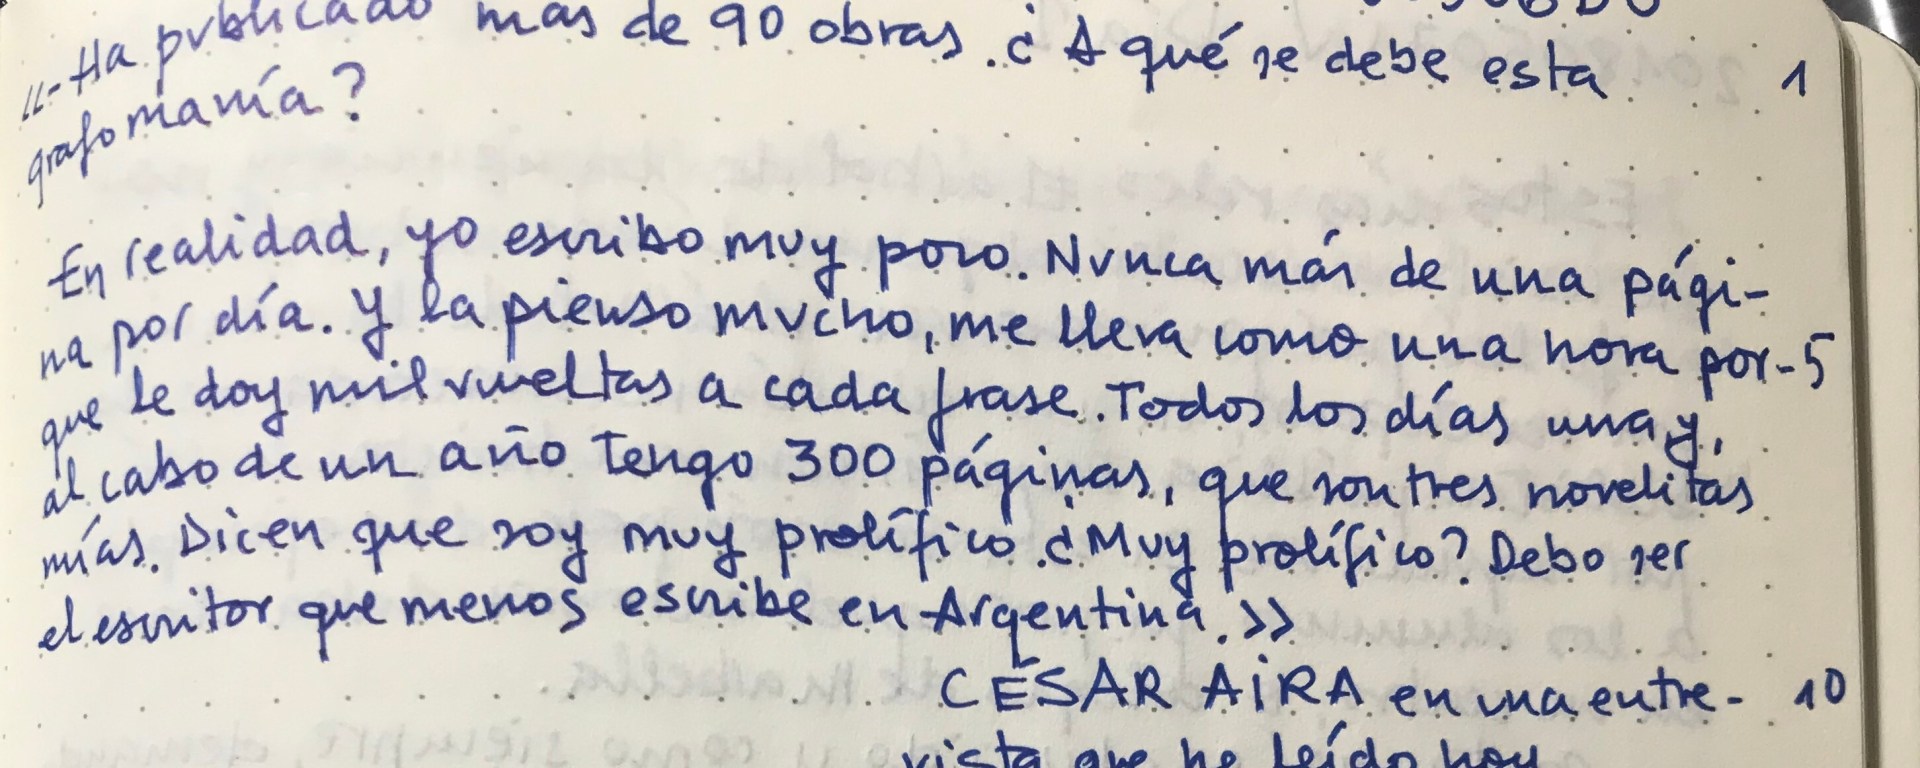 «-Ha publicado más de 90 obras. ¿A qué se debe esta 1
grafomanía?
En realidad, yo escribo muy poco. Nunca más de una pági-
na por día. Y la pienso mucho, me lleva como una hora por- 5
que le doy mil vueltas a cada frase. Todos los días una y,
al cabo de un año tengo 300 páginas, que son tres novelitas
mías. Dicen que soy muy prolífico. ¿Muy prolífico? Debo ser
el escritor que menos escribe en Argentina.»
CÉSAR AIRA en una entre- 10
vista que he leído hoy